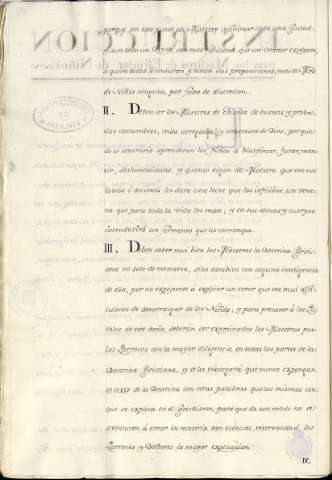 porque en esto puede un Maestro inficionar toda una Ciudad,
y aun todo un Reyno, con mas facilidad que un Orador excelente,
a quien todos censuran, y notan sus proposiciones, mas al Mro
de Niños ninguno, por falta de discrecion.
II. Deben ser los Maestros de Escuela de buenas, y proba-
das costumbres, vida arreglada, y temerosos de Dios, porque
de lo contrario aprenderán los Niños á blasfemar, jurar, men-
tir, deshonestidades, y quanto oigan del Maestro, que con sus
labios ó acciones les dará una leche que los inficióne, un vene-
no que para toda la vida los mate, y en sus almas, y cuerpos
introducirá un fomento que los corrompa.
III. Deben saber mui bien los Maestros la Doctrina Christi-
ana no solo de memoria, sino tambien con alguna inteligencia
de ella, por no exponerse á exponer un error que sea mui difi-
cultoso de desarraigar de los Niños, y para precaver á los
de este daño, deberán ser examinados los Maestros por
los Parrocos con la mayor diligencia, en todas las partes de la
Doctrina Christiana, y se les encargará que nunca expongan
el texto de la Doctrina con otras palabras que las mismas con
que se explica en el Catechismo, para que de este modo no se
aventuren á errar en materia tan esencial, reservando á los
Parrocos, y Doctores la mayor explicacion.
IV.